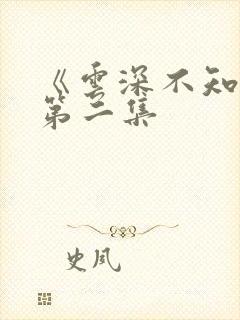 《雲深不知
第二集
史風